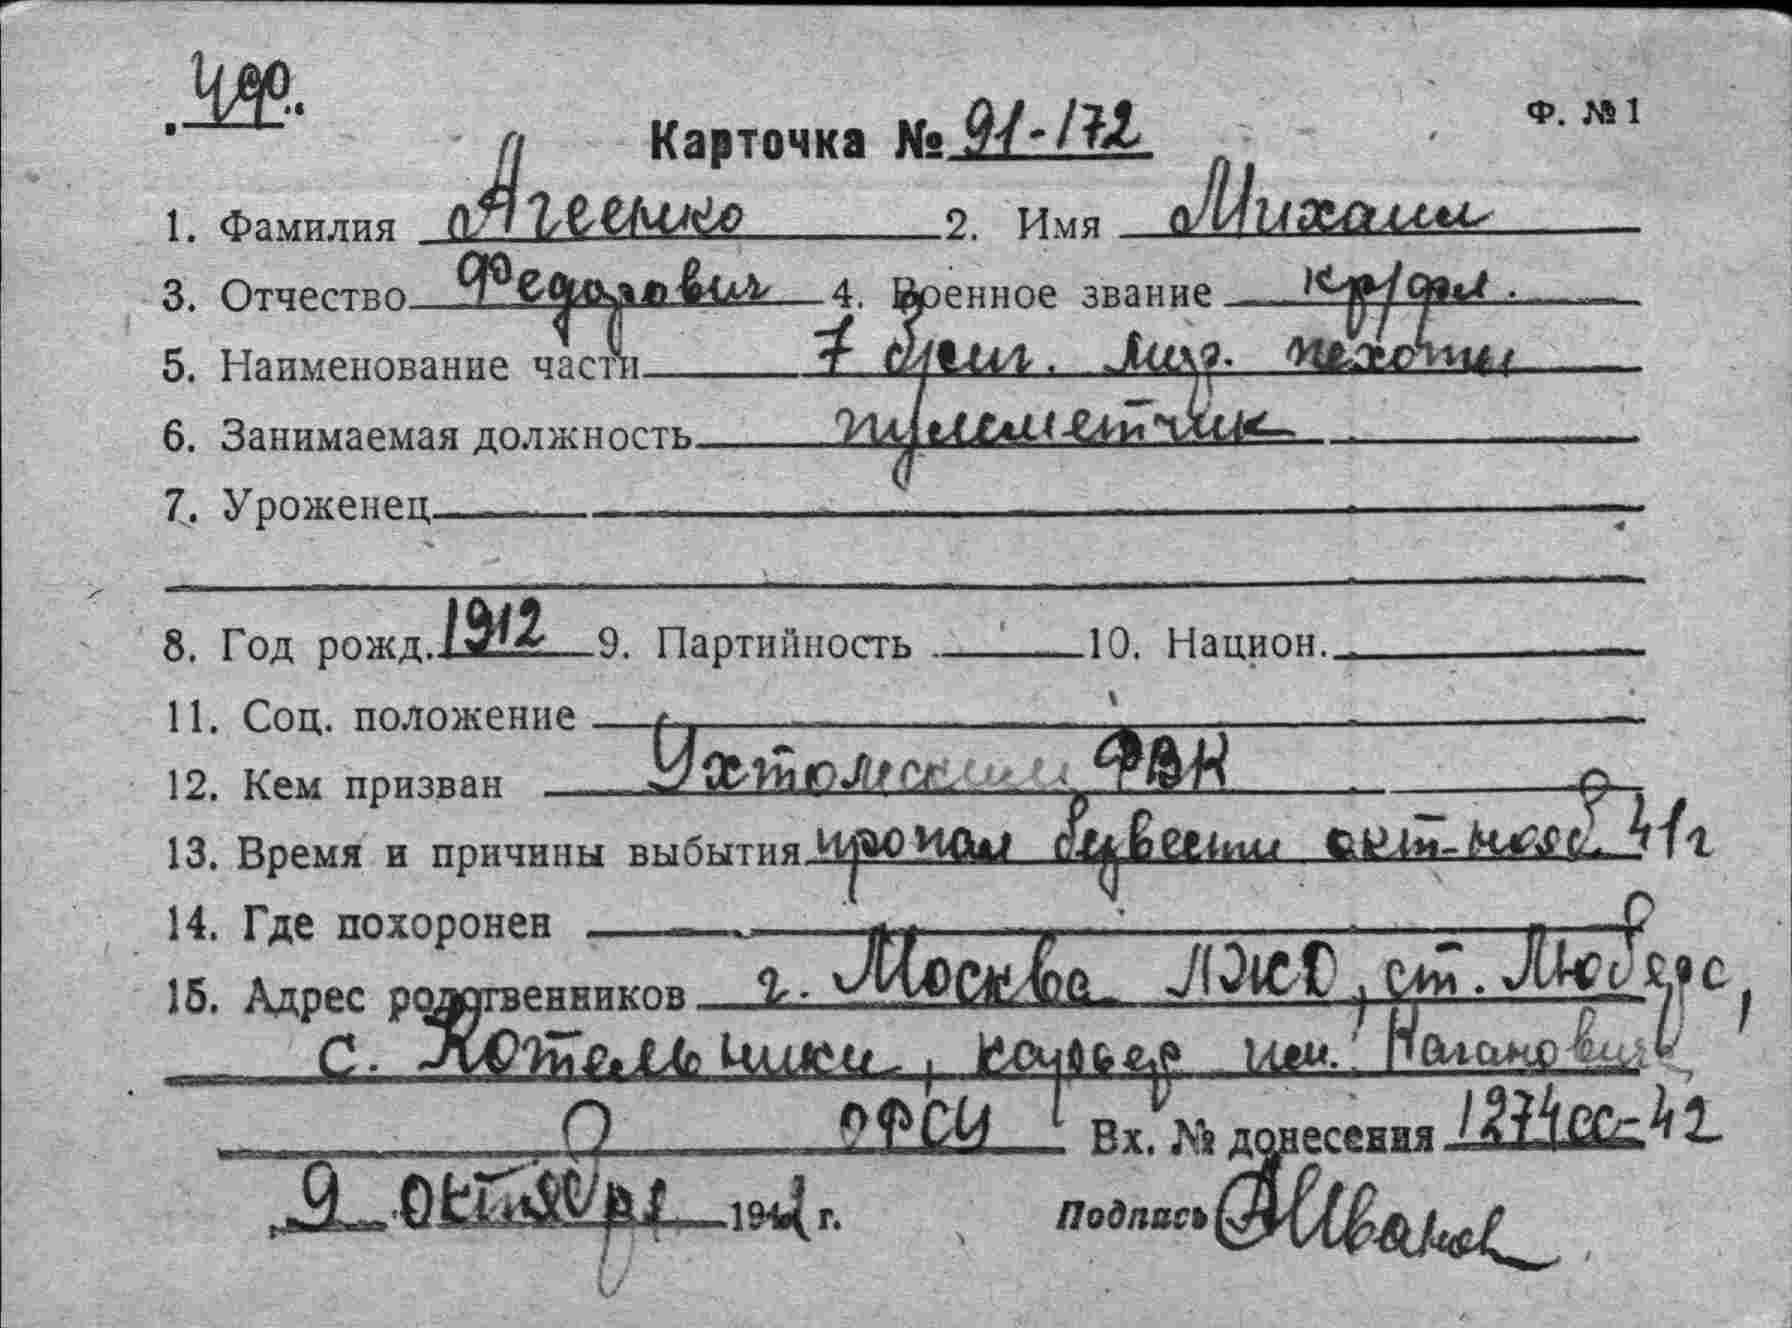 Ф. № 1
Карточка № 91-172
1. Фамилия Агеенко 2. Имя Михаил
3. Отчество Федорович 4. Военное звание кр/арм.
5. Наименование части 7 бриг. мор. пехоты
6. Занимаемая должность пулеметчик
7. Уроженец
8. Год рожд. 1912 9. Партийность 10. Национ.
11. Соц. положение
12. Кем призван Ухтомским РВК
13. Время и причины выбытия пропал безвести окт-нояб. 41г
14. Где похоронен
15. Адрес родственников г. Москва ЛЖД, ст. Люберс,
с. Котельники, карьер им. Кагановича
Вх. № донесения 1274сс-42
9 октября 194 г.
Подпись